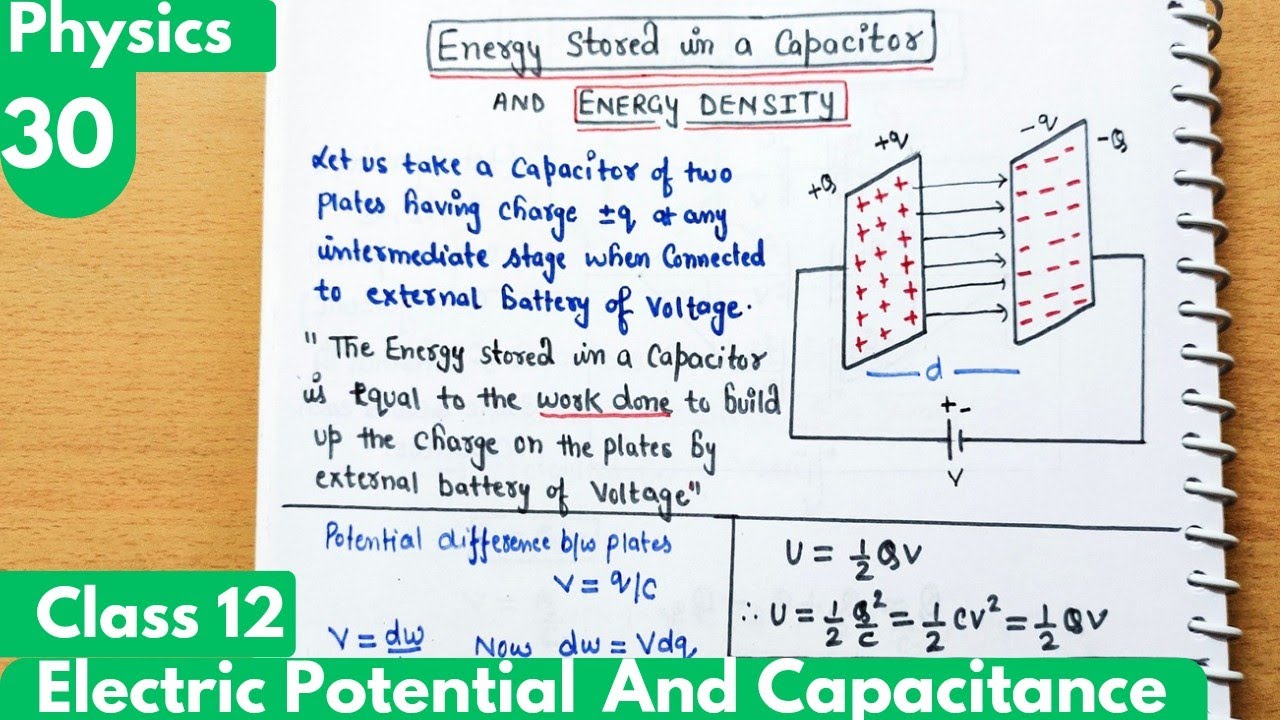 Physics
30
Energy Stored in a Capacitor
AND ENERGY DENSITY
Let us take a Capacitor of two
plates having charge ±q at any
intermediate stage when Connected
to external battery of voltage.
"The Energy stored in a Capacitor
is Equal to the work done to build
up the charge on the plates by
external battery of Voltage"
+Q
+q
-q
-Q
d
+ -
V
Potential difference b/w plates
V = q/C
V = dw
Now dw = Vdq
U = 1/2 QV
∴ U = 1/2 Q²/C = 1/2 CV² = 1/2 QV
Class 12
Electric Potential And Capacitance